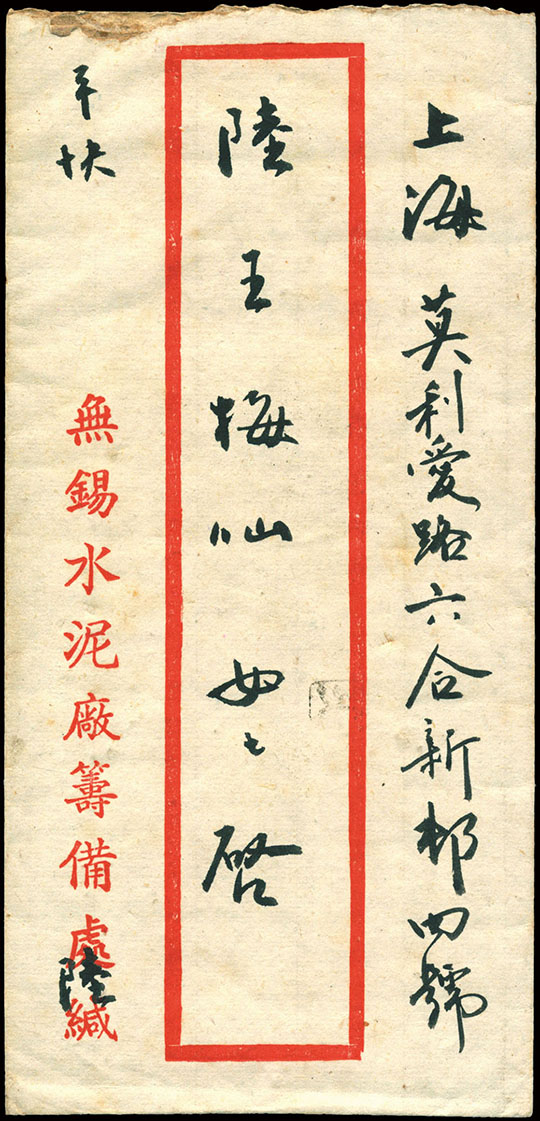 上海 莫利愛路六合新邨四號
陸王梅仙 啓
平快
無錫水泥廠籌備處緘
陸